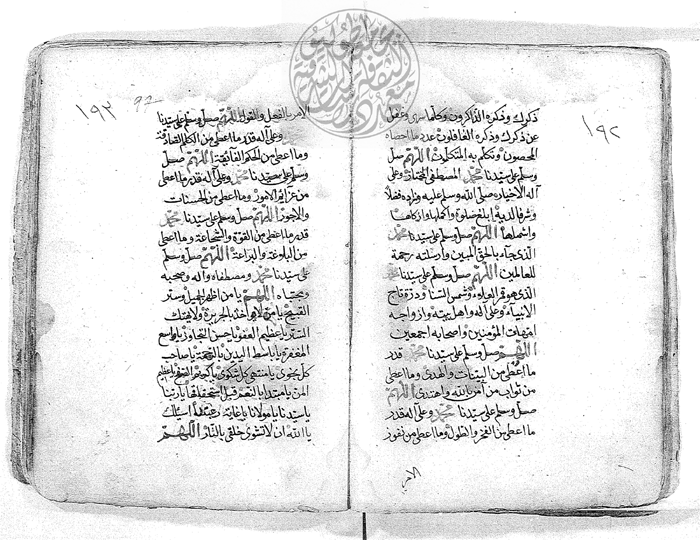 ١٩٢
ذكرك وذكره الذاكرون وكلما سهى وغفل
عن ذكرك وذكره الغافلون عدد ما احصاه
المحصون وتكلم به المتكلمون اللهم صل
وسلم على سيدنا محمد المصطفى المختار وعلى
آله الاخيار صلى الله وسلم عليه وزاده فضلا
وشرفا لديه ابلغ صلوة واكملها وازكاها
واشملها اللهم صل وسلم على سيدنا محمد
الذي جآء بالحق المبين وارسلته رحمة
للعالمين اللهم صل وسلم على سيدنا محمد
الذي هو قمر العلاء وشمس السنا ودرة تاج
الانبياء وعلى آله واهل بيته وازواجه
امهات المؤمنين واصحابه اجمعين
اللهم صل وسلم على سيدنا محمد قدر
ما اعطى من البينات والهدى وما اعطى
من ثواب من آمن بالله واهتدى اللهم
صل وسلم على سيدنا محمد وعلى آله قدر
ما اعطى من الفخر والطول وما اعطى من نفوز
الامر
١٩٣
الامر بالفعل والقول اللهم صل وسلم على سيدنا
وعلى آله قدر ما اعطى من الكلم الصادقة
وما اعطى من الحكم الفائقة اللهم صل
وسلم على سيدنا محمد وعلى آله قدر ما اعطى
من عزائم الامور وما اعطى من الحسنات
والاجور اللهم صل وسلم على سيدنا محمد
قدر ما اعطى من القوة والشجاعة وما اعطى
من البلاغة والبراعة اللهم صل وسلم
على سيدنا محمد ومصطفاه وآله وصحبه
ومجتباه اللهم يا من اظهر الجميل وستر
القبيح يا من لا يواخذ بالجريرة ولا يهتك
الستر يا عظيم العفو يا حسن التجاوز يا واسع
المغفرة يا باسط اليدين بالرحمة يا صاحب
كل نجوى يا منتهى كل شكوى يا كريم الصفح يا عظيم
المن يا مبتديا بالنعم قبل استحقاقها يا ربنا
يا سيدنا يا مولانا يا غاية رغبتنا اسئلك
يا الله ان لا تشوى خلقي بالنار اللهم